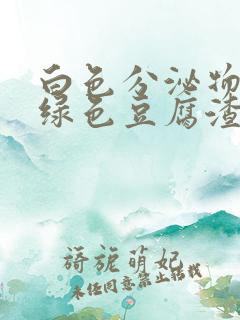 白色分泌物
绿色豆腐渣
旖旎萌妃
未经同意禁止转载